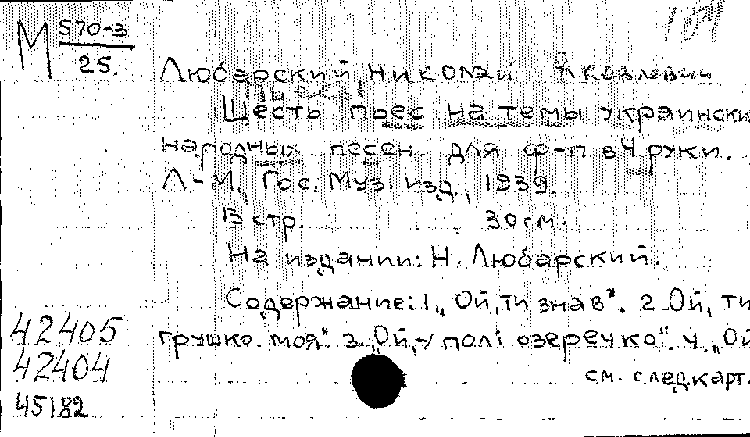 М 570-3
25.
Любарский, Николай Яковлевич
Шесть пьес на темы украински
народных песен для ф-п в 4 руки.
Л.-М., Гос. Муз. изд., 1939.
В стр. 30 см.
На издании: Н. Любарский.
Содержание: 1. „Ой, ти знав". 2. Ой, ти
грушко моя". 3. „Ой, у полі озеречко". 4. „Ой
см. след карт.
42405
42404
45182